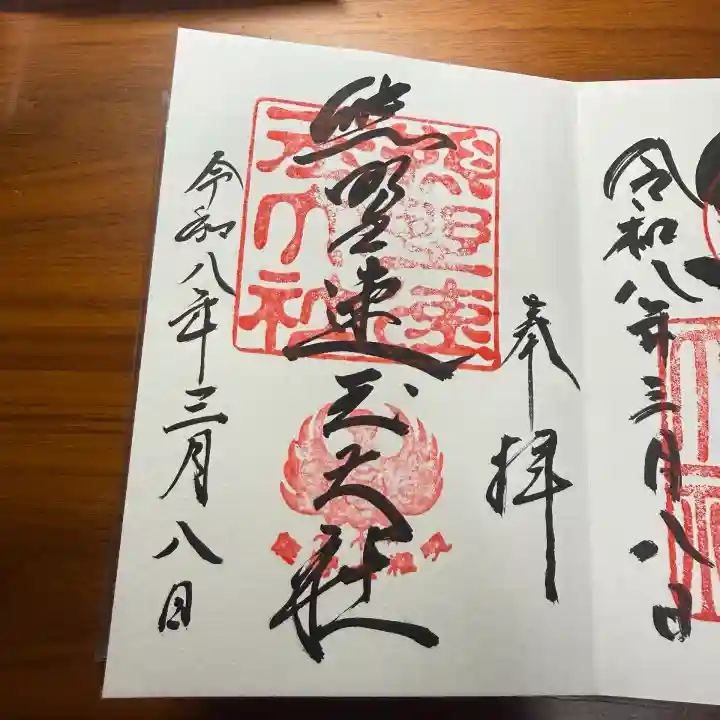 令和八年三月八日
奉拝
熊野速玉大社
令和八年三月八日